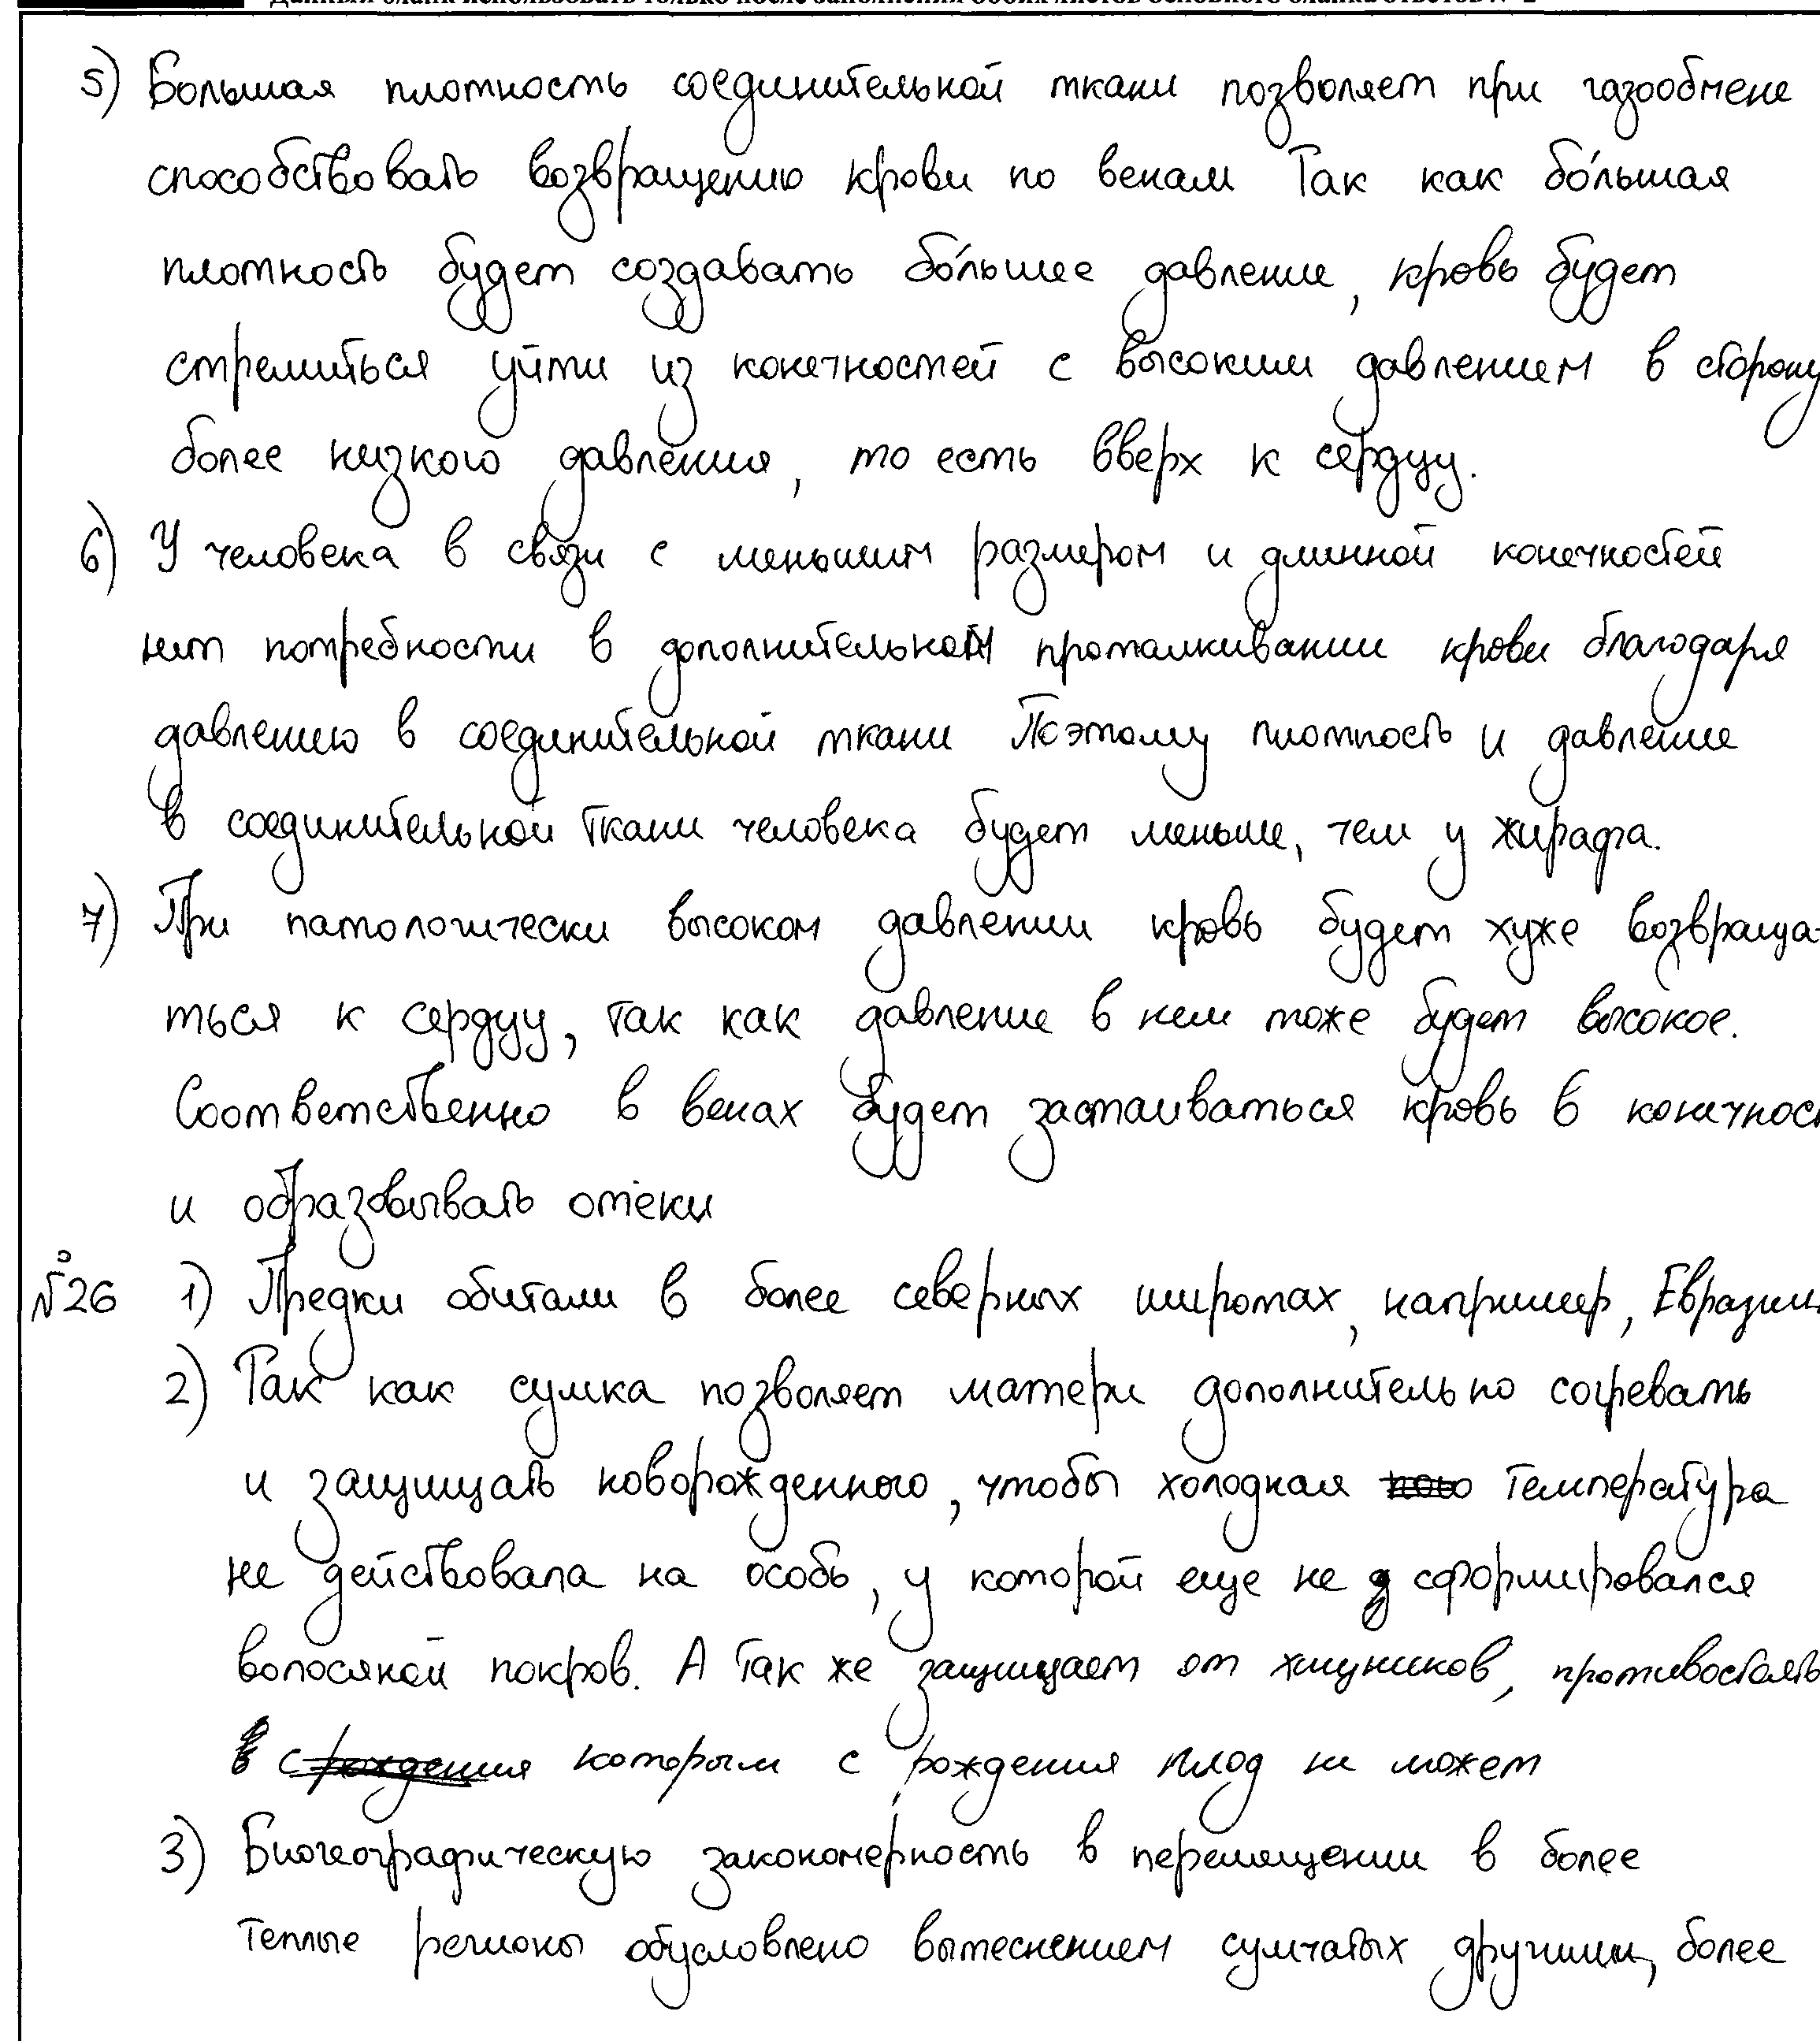 Данный бланк использовать только после заполнения обоих листов основного бланка ответов № 2
5) Большая плотность соединительной ткани позволяет при газообмене
способствовать возвращению крови по венам Так как бо́льшая
плотность будет создавать бо́льшее давление, кровь будет
стремиться уйти из конечностей с высоким давлением в сторону
более низкого давления, то есть вверх к сердцу.
6) У человека в связи с меньшим размером и длинной конечностей
нет потребности в дополнительном проталкивании крови благодаря
давлению в соединительной ткани Поэтому плотность и давление
в соединительной ткани человека будет меньше, чем у жирафа.
7) При патологически высоком давлении кровь будет хуже возвраща-
ться к сердцу, так как давление в нем тоже будет высокое.
Соответственно в венах будет застаиваться кровь в конечнос
и образовывать отеки
№26 1) Предки обитали в более северных широтах, например, Евразии
2) Так как сумка позволяет матери дополнительно согревать
и защищать новорожденного, чтобы холодная температура
не действовала на особь, у которой еще не сформировался
волосяной покров. А так же защищает от хищников, противостоять
с рождения которым с рождения плод не может
3) Биогеографическую закономерность в перемещении в более
теплые регионы обусловлено вытеснением сумчатых другими, более